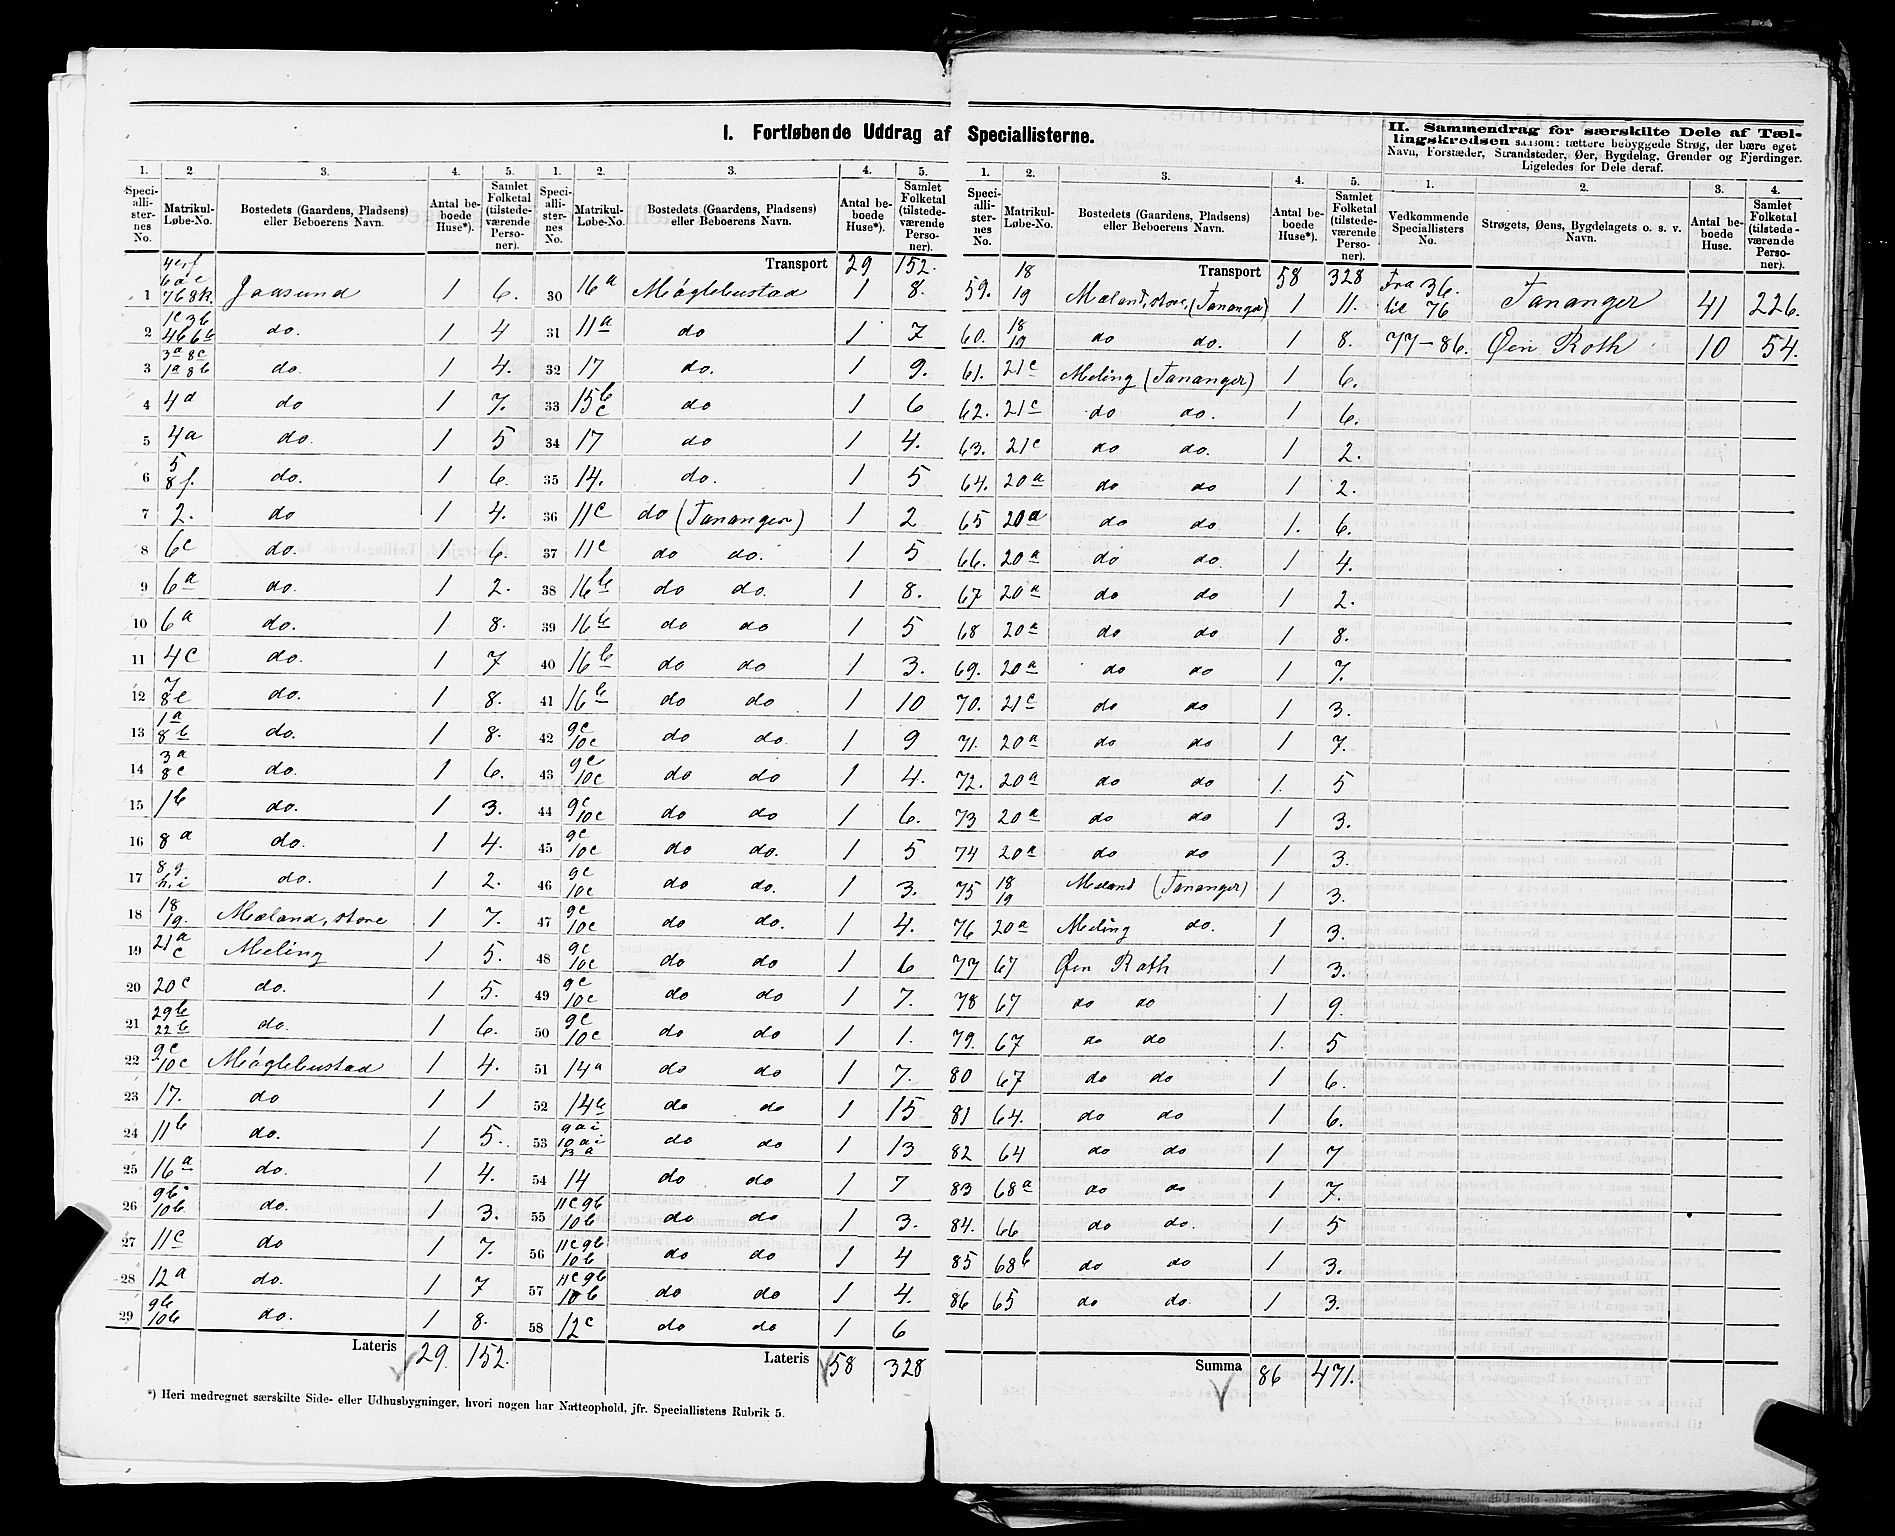 I. Fortløbende Uddrag af Speciallisterne.
II. Sammendrag for særskilte Dele af Tæl-
lingskredsen saasom: tættere bebyggede Strøg, der bære eget
Navn, Forstæder, Strandsteder, Øer, Bygdelag, Grender og Fjerdinger.
Ligeledes for Dele deraf.
1. 2 3. 4. 5.
Speciallisternes No. Matrikul-Løbe-No. Bostedets (Gaardens, Pladsens) eller Beboerens Navn. Antal beboede Huse*). Samlet Folketal (tilstedeværende Personer).
1 4e,f 6 a c 7 6 8k. Jaasund 1 6.
2 1c 3b 4b 6b do. 1 4
3 3a 8c 1a 8b do. 1 4.
4 4d do 1 7.
5 4a do. 1 5
6 5 8f. do. 1 6.
7 2. do 1 4.
8 6c do. 1 6.
9 6a do. 1 2.
10 6a do. 1 8.
11 4c do. 1 7
12 7 8e do. 1 8.
13 1a 8b do. 1 8.
14 3a 8c do. 1 6.
15 1b do. 1 3.
16 8a do. 1 4.
17 8g h.i do. 1 2.
18 18 19. Mæland, store 1 7.
19 21a c Meling 1 5.
20 20c do. 1 5.
21 29b 22b do. 1 6.
22 9c 10c Møglebustad 1 4.
23 17. do 1 1
24 11b do. 1 5.
25 16a do. 1 4.
26 9b 10b do. 1 3.
27 11c do 1 7.
28 12a do. 1 7
29 9b 10b do. 1 8.
Lateris 29. 152.
1. 2. 3. 4. 5.
Speciallisternes No. Matrikul-Løbe-No. Bostedets (Gaardens, Pladsens) eller Beboerens Navn. Antal beboede Huse*). Samlet Folketal (tilstedeværende Personer).
Transport 29 152.
30 16a Møglebustad 1 8.
31 11a do 1 7
32 17 do. 1 9.
33 15b c do 1 6
34 17 do 1 4.
35 14. do. 1 5
36 11c do (Tananger) 1 2
37 11c do do. 1 5
38 16b do do. 1 8.
39 16b do do 1 5
40 16b do do 1 3.
41 16b do do 1 10
42 9c 10c do do. 1 9
43 9c 10c do do 1 4.
44 9c 10c do do 1 6.
45 9c 10c do do. 1 5
46 9c 10c do do. 1 3.
47 9c 10c do do. 1 4.
48 9c 10c do do 1 6
49 9c 10c do do 1 7.
50 9c 10c do do 1 1.
51 14a do do 1 7.
52 14b do do 1 15
53 9ai 10ai 13a do do 1 13
54 14 do do 1 7
55 11c 9b 10b do do 1 3.
56 11c 9b 10b do do 1 4
57 11c 9b 10b do do 1 4.
58 12c do do 1 6
Lateris 58 328
1. 2. 3. 4. 5.
Speciallisternes No. Matrikul-Løbe-No. Bostedets (Gaardens, Pladsens) eller Beboerens Navn. Antal beboede Huse*). Samlet Folketal (tilstedeværende Personer).
Transport 58 328
59. 18 19 Mæland, store, (Tananger) 1 11.
60. 18 19 do do. 1 8.
61. 21c Meling (Tananger) 1 6.
62. 21c do do. 1 6.
63. 21c do do. 1 2.
64. 20a do do 1 2.
65 20a do do 1. 6.
66. 20a do do 1 4.
67 20a do do 1 2.
68 20a do do 1 8.
69. 20a do do 1 7.
70. 21c do do 1 3.
71. 20a do do 1 7.
72. 20a do do 1. 5
73 20a do do 1 3.
74 20a do do 1 3.
75 18 19 Mæland (Tananger) 1 3.
76 20a Meling do. 1 3.
77 67 Øen Roth 1 3.
78 67 do do 1 9.
79. 67 do do 1. 5
80 67 do do 1 6.
81 64. do do 1 6.
82 64 do do 1 7
83 68a do do 1 7.
84. 66 do do. 1 5
85 68b do do 1 3.
86 65 do do. 1 3.
Summa 86 471.
1. 2. 3. 4.
Vedkommende Speciallisters No. Strøgets, Øens, Bygdelagets o. s. v. Navn. Antal beboede Huse. Samlet Folketal (tilstedeværende Personer).
Fra 36. til 76 Tananger 41 226.
77-86. Øen Roth 10 54.
*) Heri medregnet særskilte Side- eller Udhusbygninger, hvori nogen har Natteophold, jfr. Speciallistens Rubrik 5.